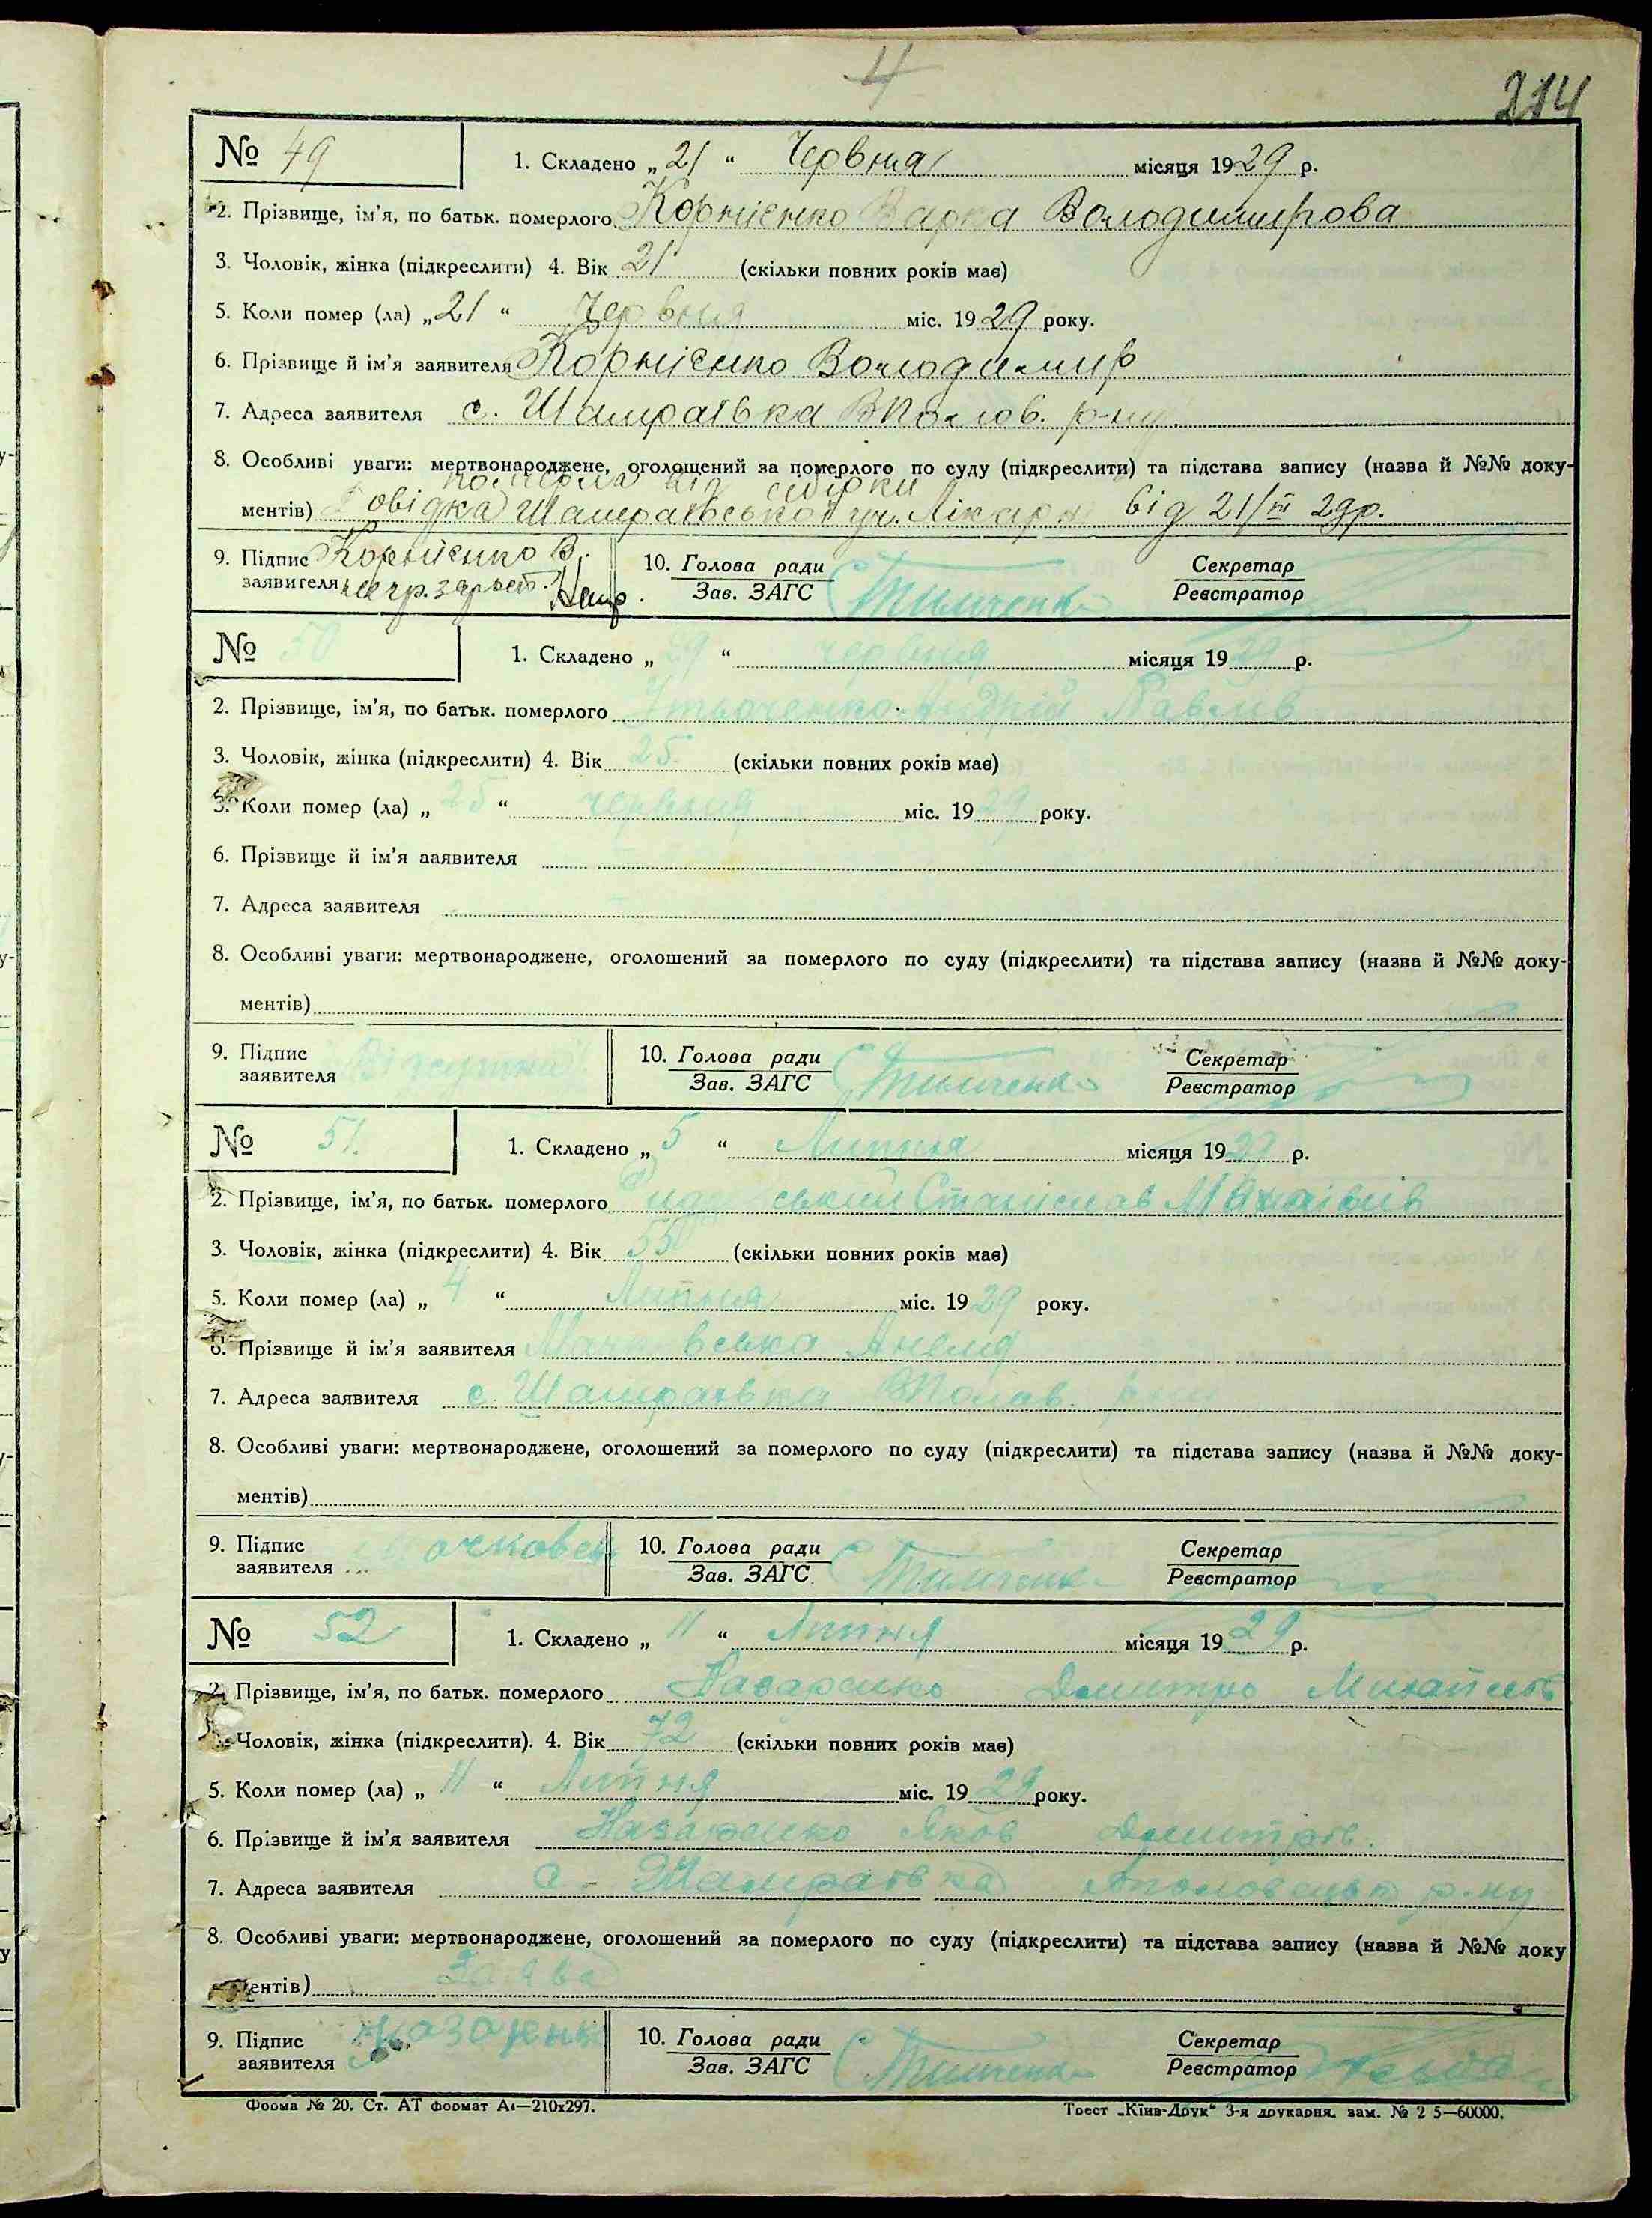 4
214
№ 49
1. Складено „ 21 “ Червня місяця 1929 р.
2. Прізвище, ім’я, по батьк. померлого Корнієнко Варка Володимирова
3. Чоловік, жінка (підкреслити) 4. Вік 21 (скільки повних років має)
5. Коли помер (ла) „ 21 “ Червня міс. 1929 року.
6. Прізвище й ім’я заявителя Корнієнко Володимир
7. Адреса заявителя с. Шамраївка ВПолов. р-ну.
8. Особливі уваги: мертвонароджене, оголощений за померлого по суду (підкреслити) та підстава запису (назва й №№ доку-
померла від
ментів) Довідка Шамраївської уч. Лікарн від 21/VI 29р.
9. Підпис заявителя Корнієнко В.
10. Голова ради
Зав. ЗАГС
Тимченко
Секретар
Реєстратор
№ 50
1. Складено „ 29 “ червня місяця 1929 р.
2. Прізвище, ім’я, по батьк. померлого Андрій Павлів
3. Чоловік, жінка (підкреслити) 4. Вік 25 (скільки повних років має)
Коли помер (ла) „ 25 “ червня міс. 1929 року.
6. Прізвище й ім’я ааявителя
7. Адреса заявителя
8. Особливі уваги: мертвонароджене, оголошений за померлого по суду (підкреслити) та підстава запису (назва й №№ доку-
ментів)
9. Підпис заявителя
10. Голова ради
Зав. ЗАГС
Тимченко
Секретар
Реєстратор
№ 51.
1. Складено „ 5 “ Липня місяця 1929 р.
2. Прізвище, ім’я, по батьк. померлого ський Станіслав
3. Чоловік, жінка (підкреслити) 4. Вік 55 (скільки повних років має)
5. Коли помер (ла) „ 4 “ Липня міс. 1929 року.
6. Прізвище й ім’я заявителя вська Анеля
7. Адреса заявителя с. Шамраївка ВПолов. р-ну
8. Особливі уваги: мертвонароджене, оголошений за померлого по суду (підкреслити) та підстава запису (назва й №№ доку-
ментів)
9. Підпис заявителя
10. Голова ради
Зав. ЗАГС
Тимченко
Секретар
Реєстратор
№ 52
1. Складено „ 11 “ Липня місяця 1929 р.
2. Прізвище, ім’я, по батьк. померлого Назаренко Дмитро Михайлов
Чоловік, жінка (підкреслити). 4. Вік 72 (скільки повних років має)
5. Коли помер (ла) „ 11 “ Липня міс. 1929 року.
6. Прізвище й ім’я заявителя Назаренко Яков Дмитров.
7. Адреса заявителя с - Шамраївка р-ну
8. Особливі уваги: мертвонароджене, оголошений за померлого по суду (підкреслити) та підстава запису (назва й №№ доку
ентів) Заява
9. Підпис заявителя Назаренко
10. Голова ради
Зав. ЗАГС
Тимченко
Секретар
Реєстратор
Форма № 20. Ст. АТ формат А4—210х297.
Трест „Київ-Друк“ 3-я друкарня. зам. № 2 5—60000.